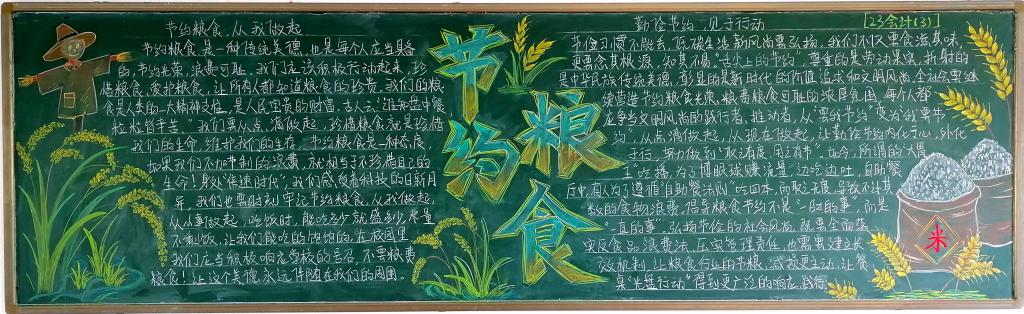 节约粮食,从我做起
节约粮食是一种传统美德,也是每个人应当具备
的,节约光荣,浪费可耻。我们应该积极行动起来,珍
惜粮食,爱护粮食,让所有人都知道粮食的珍贵。我们的粮
食是人类的一大精神支柱,是人民宝贵的财富。古人云:“谁知盘中餐
粒粒皆辛苦。”我们要从点滴做起,珍惜粮食,就是珍惜
我们的生命,维护我们的生存,节约粮食是一种态度,
如果我们不加节制的浪费,就相当于不珍惜自己的
生命!身处“倍速时代”,我们感受着科技的日新月
异,我们也要时刻牢记节约粮食,从我做起,
从小事做起,吃饭时,能吃多少就盛多少,尽量
不剩饭,让我们能吃的饱饱的。在校园里
我们应当积极响应学校的号召,不要浪费
粮食!让这个美德永远伴随在我们的周围。
节约
粮食
勤俭节约,见于行动
[23会计(3)]
节俭习惯不能丢,低碳生活新风尚要弘扬,我们不仅要食滋其味,
更要念其根源,知其不易。“舌尖上的节约”,尊重的是劳动果实,折射的
是中华民族传统美德,彰显的是新时代的价值追求和文明风尚,全社会要继
续营造节约粮食光荣,浪费粮食可耻的浓厚氛围,每个人都
应争当文明风尚的践行者、推动者,从“要我节约”变为“我要节
约”,从点滴做起,从现在做起,让勤俭节约内化于心,外化
于行,努力做到“取之有度,用之有节”。如今,所谓的“大胃
王”吃播,为了博眼球赚流量,边吃边吐,自助餐
厅中,有人为了遵循“自助餐法则”吃回本,而取之无度,导致不计其
数的食物浪费。倡导粮食节约不是“一时的事”,而是
“一直的事”。弘扬节俭的社会风尚,既要全面落
实反食品浪费法,压实管理责任,也需要建立长
效机制,让粮食行业的节粮、减损更主动,让餐
桌“光盘行动”得到更广泛的响应、践行。
米